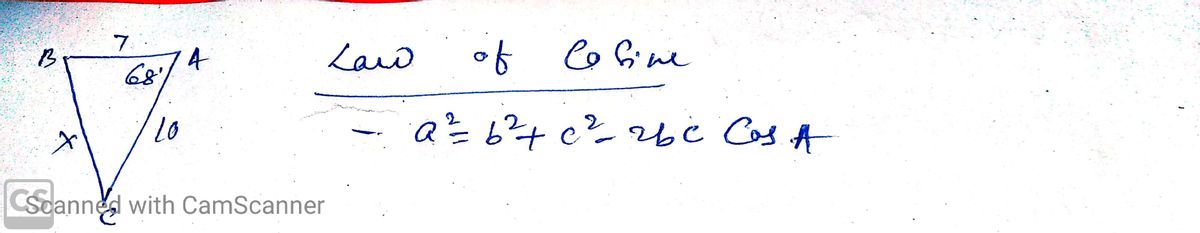 B 7 A
68°
Law of Cosine
x 10
- a²= b²+ c²- 2bc Cos A
CS Scanned with CamScanner
C